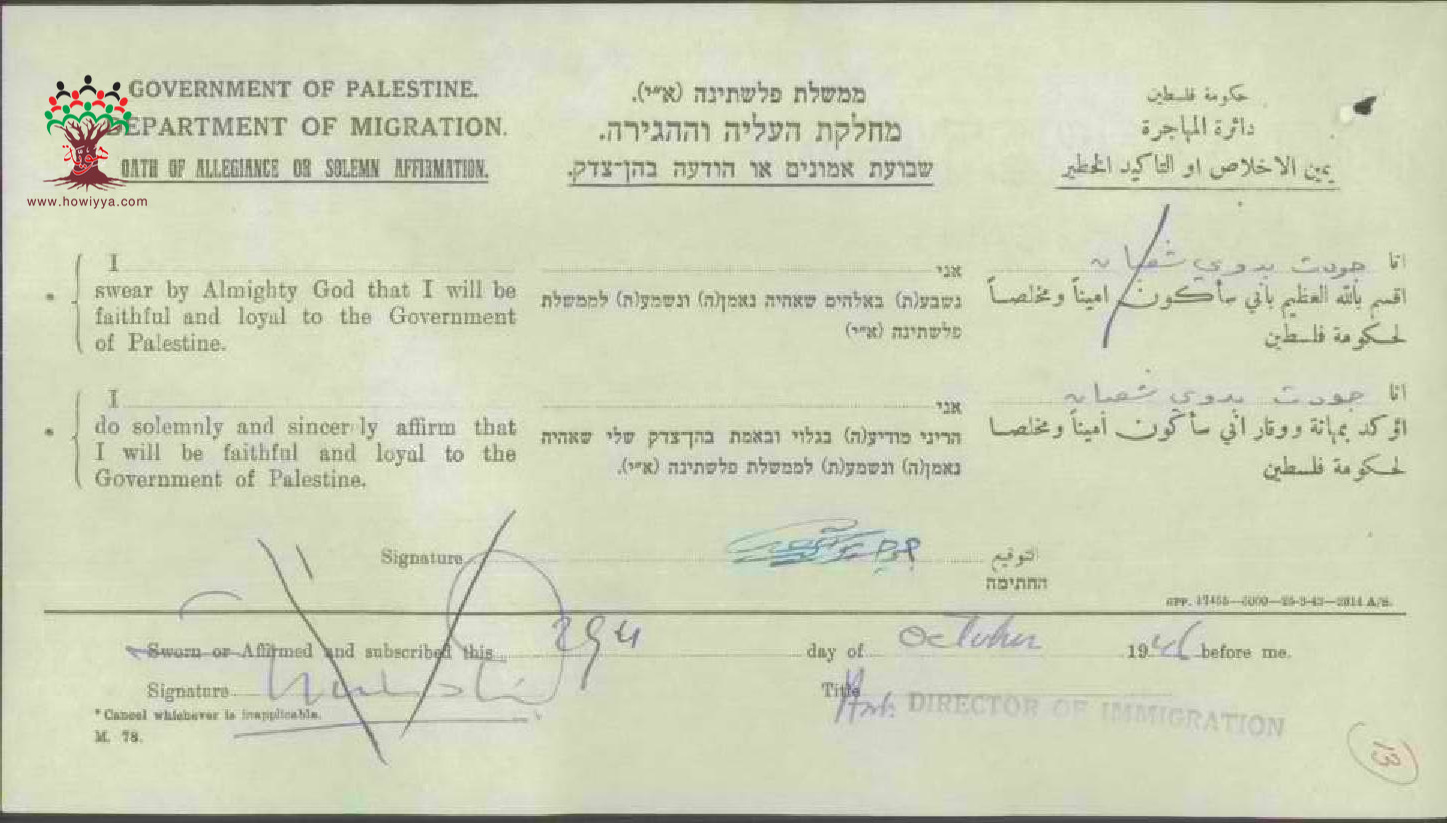 GOVERNMENT OF PALESTINE.
DEPARTMENT OF MIGRATION.
OATH OF ALLEGIANCE OR SOLEMN AFFIRMATION.
ממשלת פלשתינה (א״י).
מחלקת העליה וההגירה.
שבועת אמונים או הודעה בהן־צדק.
حكومة فلسطين
دائرة المهاجرة
يمين الاخلاص او التاكيد الخطير
هوية
www.howiyya.com
* I
swear by Almighty God that I will be
faithful and loyal to the Government
of Palestine.
אני
נשבע(ת) באלהים שאהיה נאמן(ה) ונשמע(ת) לממשלת
פלשתינה (א״י)
انا جودت بدوي شعبان
اقسم بالله العظيم باني سأكون اميناً ومخلصاً
لحكومة فلسطين
* I
do solemnly and sincerely affirm that
I will be faithful and loyal to the
Government of Palestine.
אני
הריני מודיע(ה) בגלוי ובאמת בהן־צדק שלי שאהיה
נאמן(ה) ונשמע(ת) לממשלת פלשתינה (א״י).
انا جودت بدوي شعبان
اؤكد بمهابة ووقار اني سأكون أميناً ومخلصا
لحكومة فلسطين
Signature
التوقيع
החתימה
GPP. 17455—5000—25-3-43—2814 A/S.
Sworn or Affirmed and subscribed this 29th day of October 1946 before me.
Signature
Title
DIRECTOR OF IMMIGRATION
* Cancel whichever is inapplicable.
M. 78.